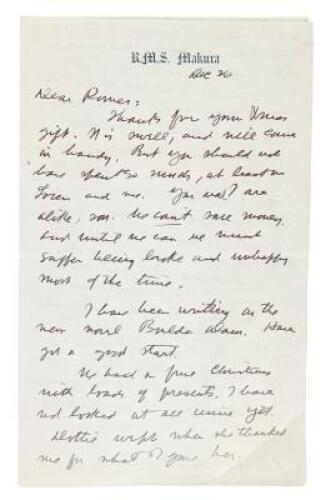 R.M.S. Makura
Dec 26
Dear Romer:
Thanks for your Xmas
gift. It is swell, and will come
in handy. But you should not
have spent so much, at least on
Loren and me. You and I are
alike, son. We can't save money,
and until we can we must
suffer being broke and unhappy
most of the time.
I have been writing on the
new novel Boulder Dam. Have
got a good start.
We had a fine Christmas
with loads of presents. I have
not looked at all mine yet.
Dottie wept when she thanked
me for what I gave her.